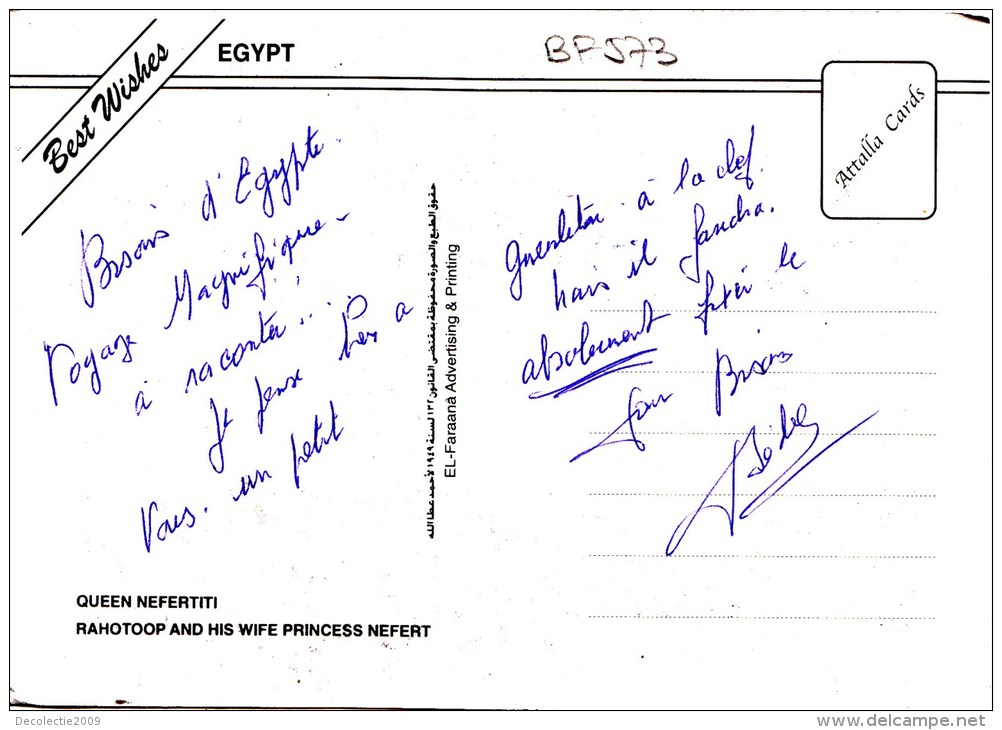 Best Wishes
EGYPT
BF 573
Attalla Cards
Bisous d'Egypte.
Voyage Magnifique -
à raconter...
Je pense bien a
Vous. un petit
à la clef.
Mais il faudra.
absolument le
Bisous
حقوق الطبع والصورة محفوظة بمقتضى القانون ١٣٢ لسنة ١٩٤٩ لأحمد عطا الله
EL-Faraana Advertising & Printing
QUEEN NEFERTITI
RAHOTOOP AND HIS WIFE PRINCESS NEFERT
Decolectie2009
www.delcampe.net